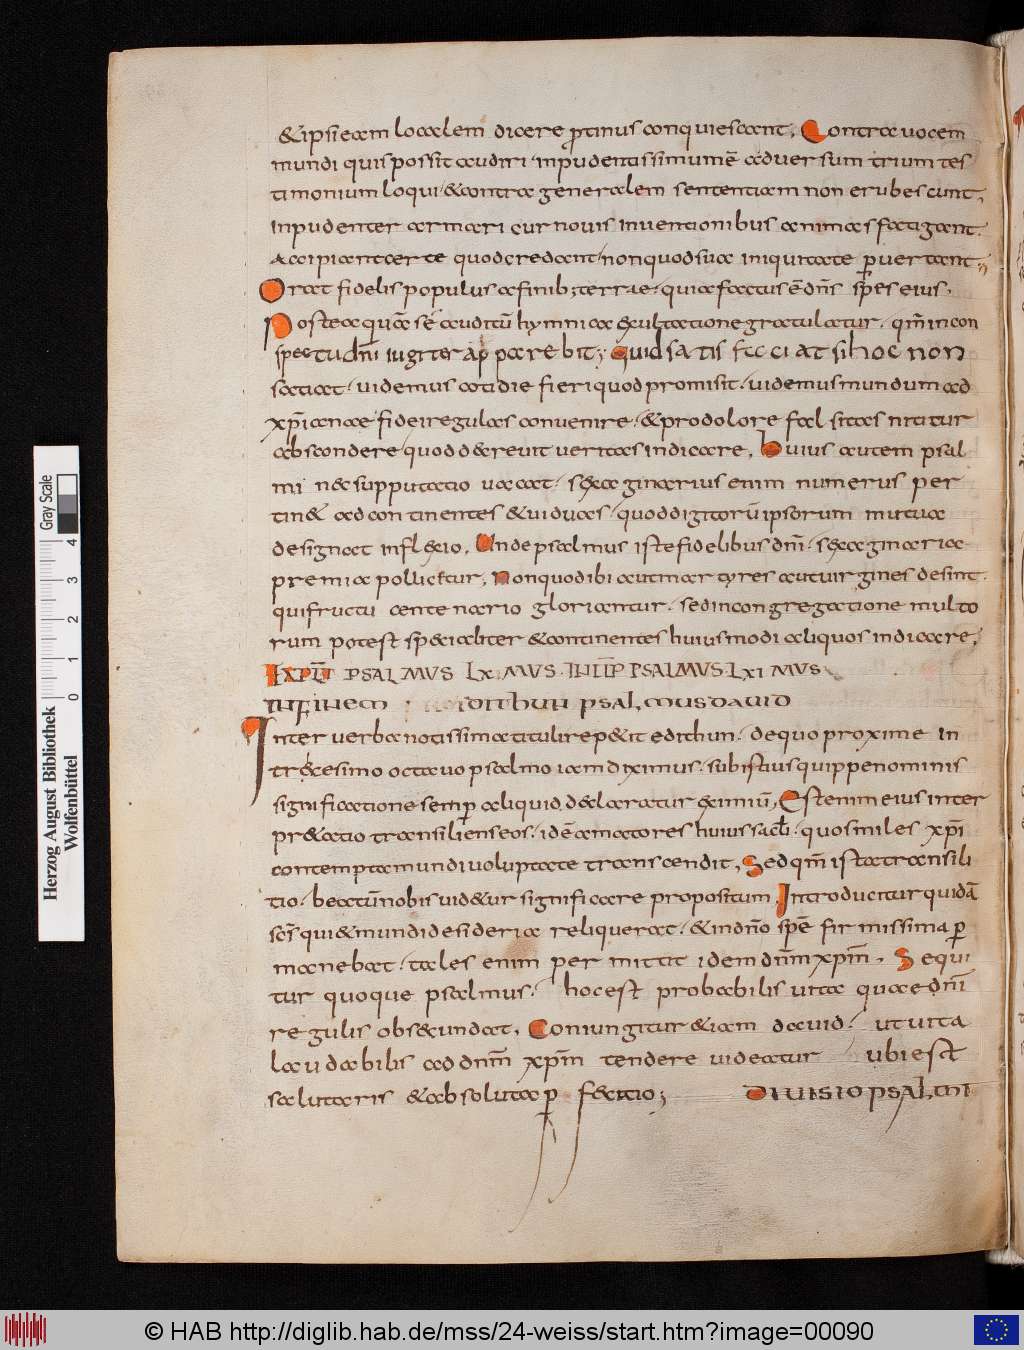 &ipsi eam localem dicere ꝓtinus conquiescant. Contra uocem
mundi quis possit audiri · inpudentissimum ē aduersum trium tes
timonium loqui · & contra generalem sententiam non erubescunt,
inpudenter armari cur nouis inuentionibus animas fatigant.
Accipiant certe quod credant / non quod sua iniquitate ꝑuertant;
Orat fidelis populus a finib; terrae · quia factus ē dn̄s spes eius.
Postea quā se auditū hymni ac exultatione gratulatur · qm̄ in con
spectu dn̄i iugiter apparebit; Quid satis faciat si hoc non
satiat · uidemus cotidie fieri quod promisit · uidemus mundum ad
xp̄ianae fidei regulas conuenire · & pro dolore falsitas nititur
abscondere quod decreuit ueritas indicare. Huius autem psal
mi nec supputatio uacat · sexaginarius enim numerus per
tin& ad continentes & uiduas · quod digitorū ipsorum mutua
designat inflexio. Unde psalmus iste fidelibus dn̄i · sexaginaria
premia pollicetur. Non quod ibi aut martyres aut uirgines desint.
qui fructu centenario gloriantur · sed in congregatione multo
rum potest specialiter & continentes huiusmodi aliquos indicare.
EXPLĪT PSALMUS LX MUS · INCIP̄ PSALMUS LXI MUS
IN FINEM IDITHUN PSALMUS DAUID
Inter uerba notissima tituli rep&it edithun · de quo proxime in
tricesimo octauo psalmo iam diximus · sub istius quippe nominis
significatione semꝑ aliquid declaratur eximiū. Est enim eius inter
pr&atio transiliens eos · id ē amatores huius saecl̄i · quos miles xp̄i
contempta mundi uoluptate transcendit. Sed qm̄ ista transili
tio · beatū nobis uid&ur significare propositum. Introducitur quidā
sc̄s qui & mundi desideria reliquerat · & in dn̄o spē firmissima ꝑ
manebat · tales enim permittit idem dn̄m xp̄m. Sequi
tur quoque psalmus · hoc est probabilis uita quae dn̄i
regulis obsecundat. Coniungitur &iam dauid · ut uita
laudabilis ad dn̄m xp̄m tendere uideatur ubi est
salutaris & absoluta ꝑfectio; DIUISIO PSALMI
Herzog August Bibliothek
Wolfenbüttel
0 1 2 3 4
Gray Scale
© HAB http://diglib.hab.de/mss/24-weiss/start.htm?image=00090